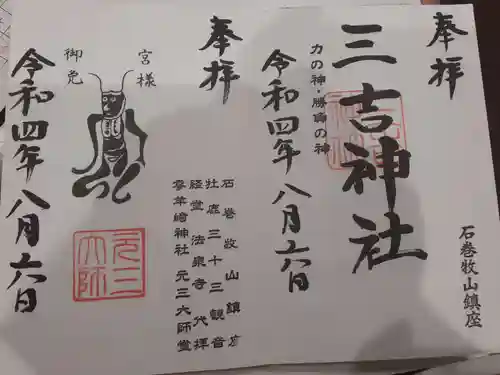 奉拝
三吉神社
力の神・勝負の神
石巻牧山鎮座
令和四年八月六日
奉拝
石巻牧山鎮座
牡鹿三十三観音
経堂法泉寺代拝
零羊崎神社元三大師堂
宮様
御免
元三大師
令和四年八月六日